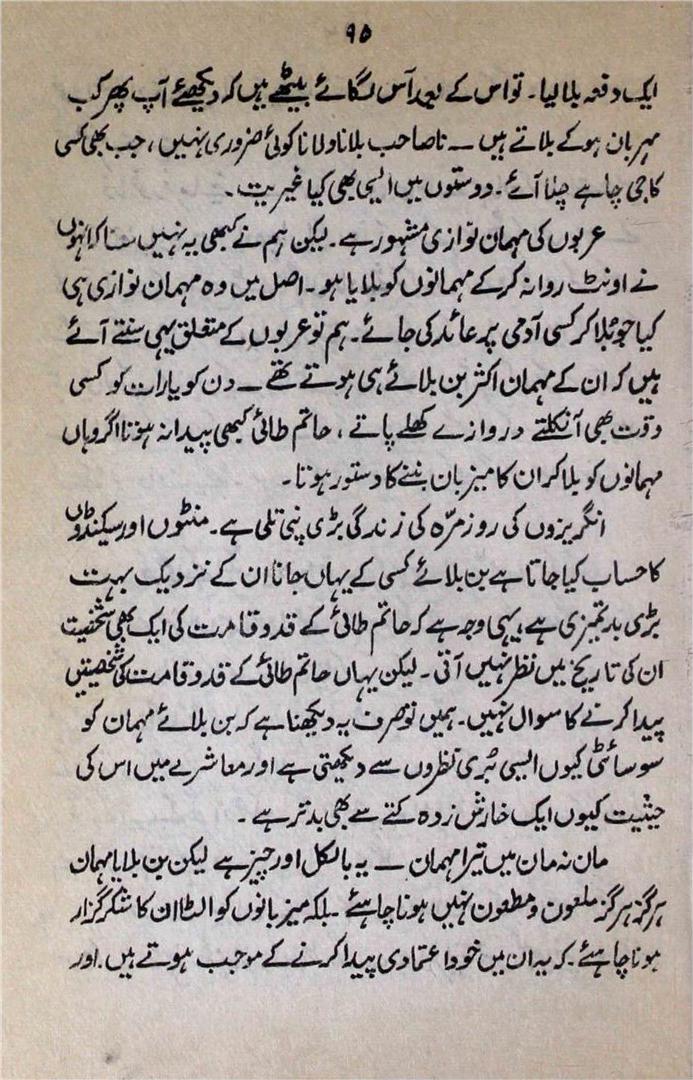 ۹۵
ایک دفعہ بلا لیا۔ تو اس کے بعد آس لگائے بیٹھے ہیں کہ دیکھئے آپ پھر کب
مہربان ہو کے بلاتے ہیں — نا صاحب بلانا ولانا کوئی ضروری نہیں، جب بھی کسی
کا جی چاہے چلا آئے۔ دوستوں میں ایسی بھی کیا غیریت۔
عربوں کی مہمان نوازی مشہور ہے۔ لیکن ہم نے کبھی یہ نہیں سنا کہ انہوں
نے اونٹ روانہ کر کے مہمانوں کو بلایا ہو۔ اصل میں وہ مہمان نوازی ہی
کیا جو بُلا کر کسی آدمی پر عائد کی جائے۔ ہم تو عربوں کے متعلق یہی سنتے آئے
ہیں کہ ان کے مہمان اکثر بن بلائے ہی ہوتے تھے — دن کو یا رات کو کسی
وقت بھی آنکلتے دروازے کھلے پاتے، حاتم طائی کبھی پیدا نہ ہوتا اگر وہاں
مہمانوں کو بلا کر ان کا میزبان بننے کا دستور ہوتا۔
انگریزوں کی روزمرّہ کی زندگی بڑی نپی تلی ہے۔ منٹوں اور سیکنڈوں
کا حساب کیا جاتا ہے بن بلائے کسی کے یہاں جانا ان کے نزدیک بہت
بڑی بدتمیزی ہے یہی وجہ ہے کہ حاتم طائی کے قدوقامت کی ایک بھی شخصیت
ان کی تاریخ میں نظر نہیں آتی۔ لیکن یہاں حاتم طائی کے قدوقامت کی شخصیتیں
پیدا کرنے کا سوال نہیں۔ ہمیں تو صرف یہ دیکھنا ہے کہ بن بلائے مہمان کو
سوسائٹی کیوں ایسی بُری نظروں سے دیکھتی ہے اور معاشرے میں اس کی
حیثیت کیوں ایک خارش زدہ کتے سے بھی بدتر ہے۔
مان نہ مان میں تیرا مہمان — یہ بالکل اور چیز ہے لیکن بن بلایا مہمان
ہرگز ہرگز ملعون و مطعون نہیں ہونا چاہئے۔ بلکہ میزبانوں کو الٹا ان کا شکر گزار
ہونا چاہئے۔ کہ یہ ان میں خود اعتمادی پیدا کرنے کے موجب ہوتے ہیں۔ اور